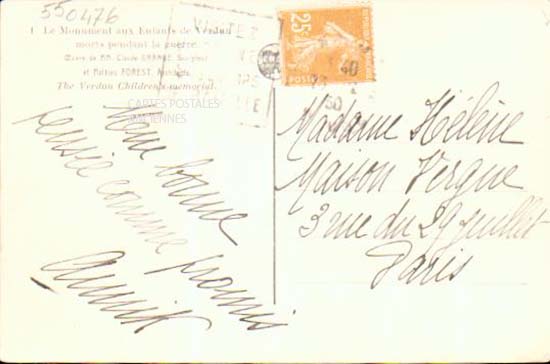 550476
1 Le Monument aux Enfants de Verdun
morts pendant la guerre.
Œuvre de MM. Claude GRANGE, Sculpteur
et Mathieu FOREST, Architecte
The Verdun Children's memorial.
CARTES POSTALES
ANCIENNES
VISITEZ
25c
POSTES
40
30
bonne
pensée comme promis
Annick
Madame Hélène
Maison Vergne
3 rue du 29 juillet
Paris